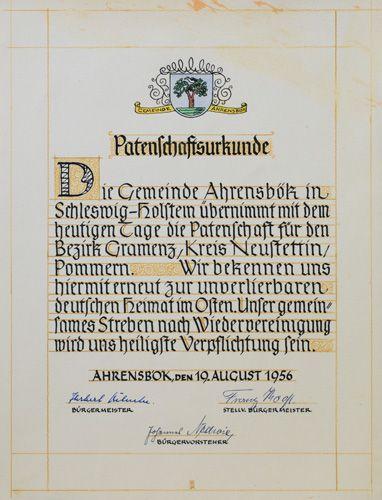 GEMEINDE AHRENSBÖK
Patenschaftsurkunde
Die Gemeinde Ahrensbök in
Schleswig-Holstein übernimmt mit dem
heutigen Tage die Patenschaft für den
Bezirk Gramenz, Kreis Neustettin,
Pommern. Wir bekennen uns
hiermit erneut zur unverlierbaren
deutschen Heimat im Osten. Unser gemein=
sames Streben nach Wiedervereinigung
wird uns heiligste Verpflichtung sein.
AHRENSBÖK, DEN 19. AUGUST 1956
BÜRGERMEISTER
STELLV. BÜRGERMEISTER
BÜRGERVORSTEHER